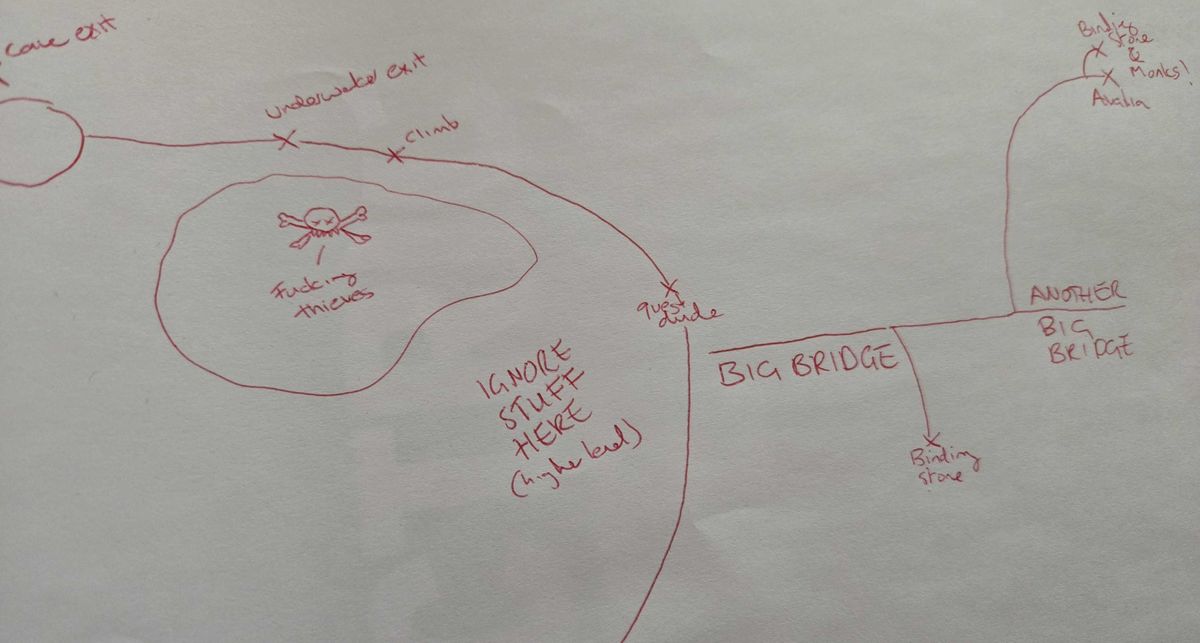 cave exit
underwater exit
climb
Binding
stone
&
Monks!
Avalia
Fucking
thieves
quest
dude
IGNORE
STUFF
HERE
(higher level)
BIG BRIDGE
ANOTHER
BIG
BRIDGE
Binding
stone